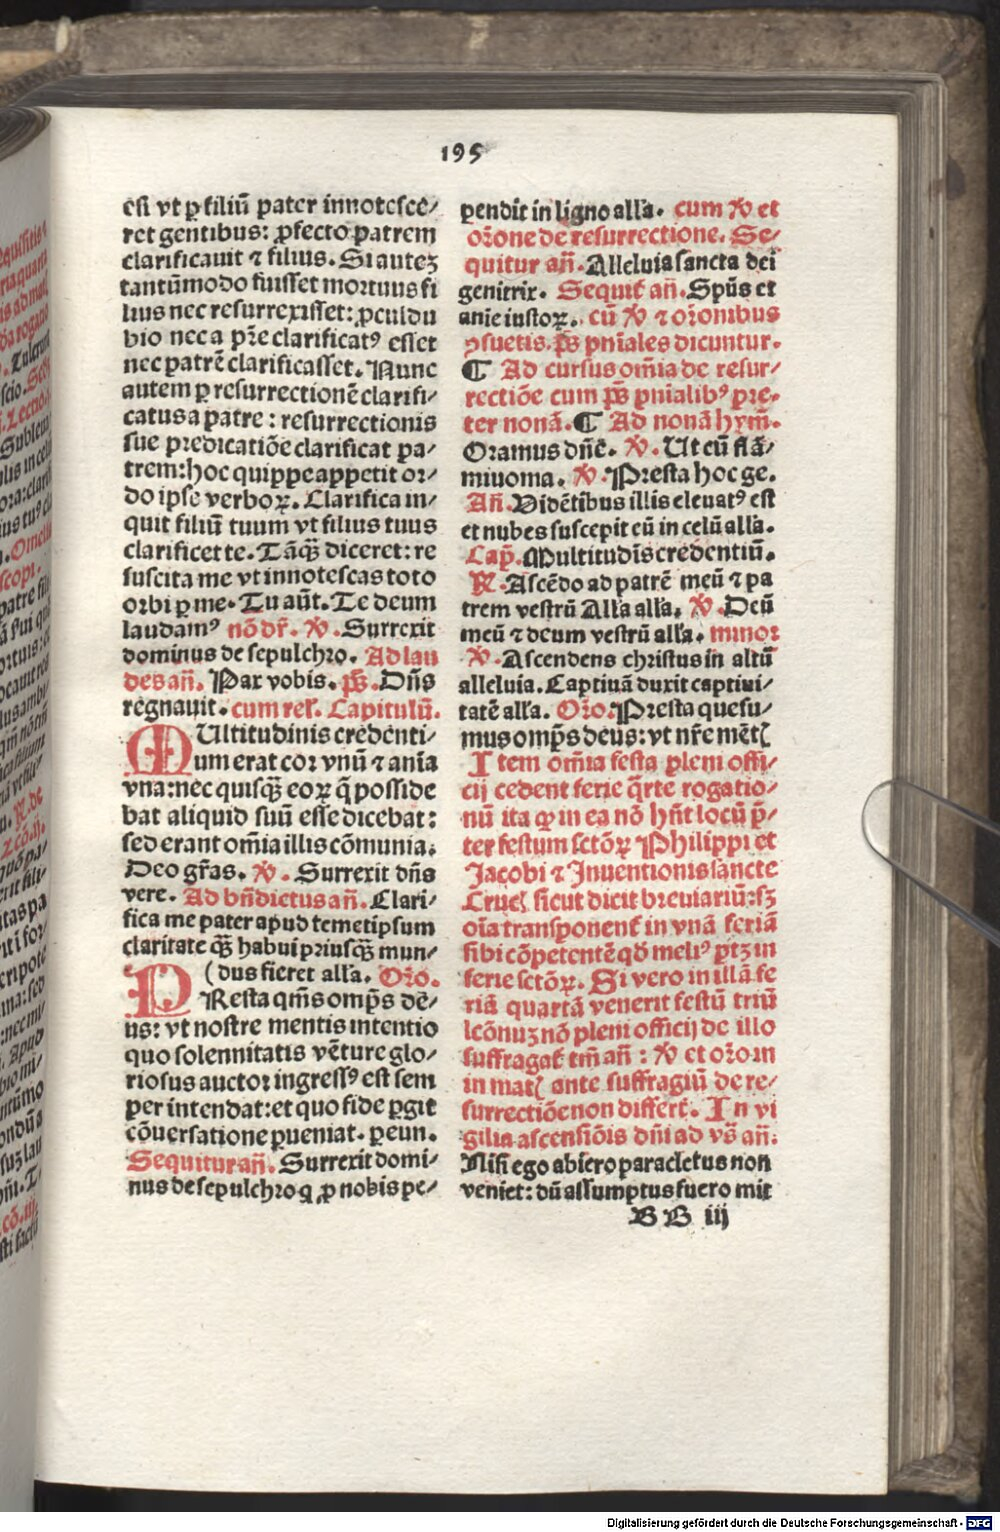 195
est vt ꝑ filiū pater innotesce⸗
ret gentibus: ꝓfecto patrem
clarificauit ⁊ filius. Si autēꝫ
tantūmodo fuisset mortuus fi
lius nec resurrexisset: ꝓculdu
bio nec a pr̄e clarificatꝰ esset
nec patrē clarificasset. Nunc
autem ꝑ resurrectionē clarifi⸗
catus a patre : resurrectionis
sue predicatiōe clarificat pa⸗
trem: hoc quippe appetit or⸗
do ipse verboꝝ. Clarifica in⸗
quit filiū tuum vt filius tuus
clarificet te. Tāq̄ꝫ diceret: re
suscita me vt innotescas toto
orbi ꝑ me. Tu aūt. Te deum
laudamꝰ nō dr̄. ℣. Surrexit
dominus de sepulchro. Ad lau
des añ. Pax vobis. p̄s. Dn̄s
regnauit. cum rel'. Capitulū.
MUltitudinis credenti⸗
um erat cor vnū ⁊ aīa
vna: nec quisq̄ꝫ eoꝝ q̄ posside
bat aliquid suū esse dicebat:
sed erant om̄ia illis cōmunia.
Deo gr̄as. ℣. Surrexit dn̄s
vere. Ad bn̄dictus añ. Clari⸗
fica me pater apud temetipsum
claritate q̄ꝫ habui priusq̄ꝫ mun⸗
(dus fieret all'a. Or̄o.
PResta qm̄s omp̄s de⸗
us: vt nostre mentis intentio
quo solennitatis vēture glo⸗
riosus auctor ingressꝰ est sem
per intendat: et quo fide ꝑgit
cōuersatione ꝑueniat. ꝑ eun.
Sequitur añ. Surrexit domi⸗
nus de sepulchro q ꝓ nobis pe⸗
pendit in ligno all'a. cum ℣ et
or̄one de resurrectione. Se⸗
quitur añ. Alleluia sancta dei
genitrix. Sequit̄ añ. Sp̄us et
anie iustoꝝ. cū ℣ ⁊ or̄onibus
ꝯsuetis. p̄s pn̄iales dicuntur.
¶ Ad cursus om̄ia de resur⸗
rectiōe cum p̄s pnialibꝰ pre⸗
ter nonā. ¶ Ad nonā hym̄.
Oramus dn̄e. ℣. Ut cū flā⸗
miuoma. ℣. Presta hoc ge.
Añ. Uidētibus illis eleuatꝰ est
et nubes suscepit eū in celū all'a.
Cap̄. Multitudīs credentiū.
℟. Ascēdo ad patrē meū ⁊ pa
trem vestrū All'a all'a. ℣. Deū
meū ⁊ deum vestrū all'a. minor
℣. Ascendens christus in altū
alleluia. Captiuā duxit captiui⸗
tatē all'a. Or̄o. Presta quesu⸗
mus omp̄s deus: vt nr̄e mēt
Item om̄ia festa pleni offi⸗
cij cedent ferie q̄rte rogatio⸗
nū ita ꝙ in ea nō hn̄t locū p̄⸗
ter festum sctōꝝ Philippi et
Jacobi ⁊ Inuentionis sancte
Cruc sicut dicit breuiariū: sꝫ
oīa transponent̄ in vnā feriā
sibi cōpetentē qd̄ meliꝰ ptꝫ in
ferie sctōꝝ. Si vero in illā fe
riā quartā venerit festū triū
lcōnuꝫ nō pleni officij de illo
suffragat̄ tm̄ añ : ℣ et or̄o in
in mat ante suffragiū de re⸗
surrectiōe non differt̄. In vi
gilia ascensiōis dn̄i ad vs̄ añ.
Nisi ego abiero paracletus non
veniet: dū assumptus fuero mit
BB iij
Digitalisierung gefördert durch die Deutsche Forschungsgemeinschaft - DFG